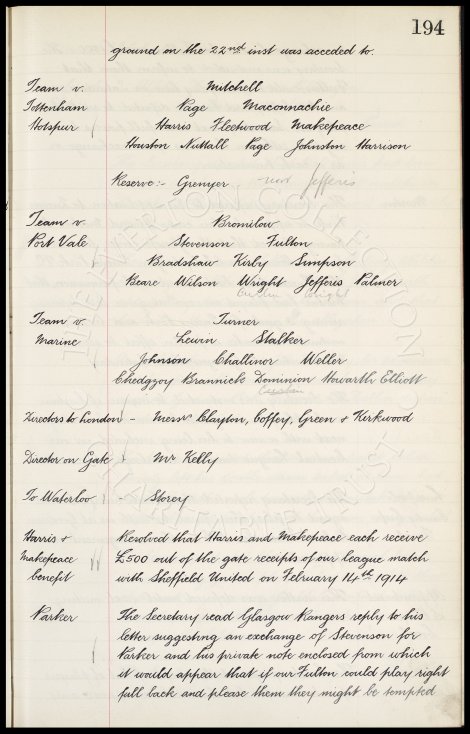 194
ground on the 22nd inst was acceded to.
Team v. Mitchell
Tottenham Page Maconnachie
Hotspur Harris Fleetwood Makepeace
Houston Nuttall Page Johnston Harrison
Reserve:- Grenyer now Jefferis
Team v. Bromilow
Port Vale Stevenson Fulton
Bradshaw Kirby Simpson
Beare Wilson Wright Jefferis Palmer
Wright
Team v. Turner
Marine Lewin Stalker
Johnson Challinor Weller
Chedgzoy Brannick Dominion Howarth Elliott
Directors to London - Messrs Clayton, Coffey, Green & Kirkwood
Director on Gate Mr Kelly
To Waterloo - Storey
Harris & Resolved that Harris and Makepeace each receive
Makepeace £500 out of the gate receipts of our league match
benefit with Sheffield United on February 14th 1914
Parker The Secretary read Glasgow Rangers reply to his
letter suggesting an exchange of Stevenson for
Parker and his private note enclosed from which
it would appear that if our Fulton could play right
full back and please them they might be tempted
THE EVERTON COLLECTION
CHARITABLE TRUST